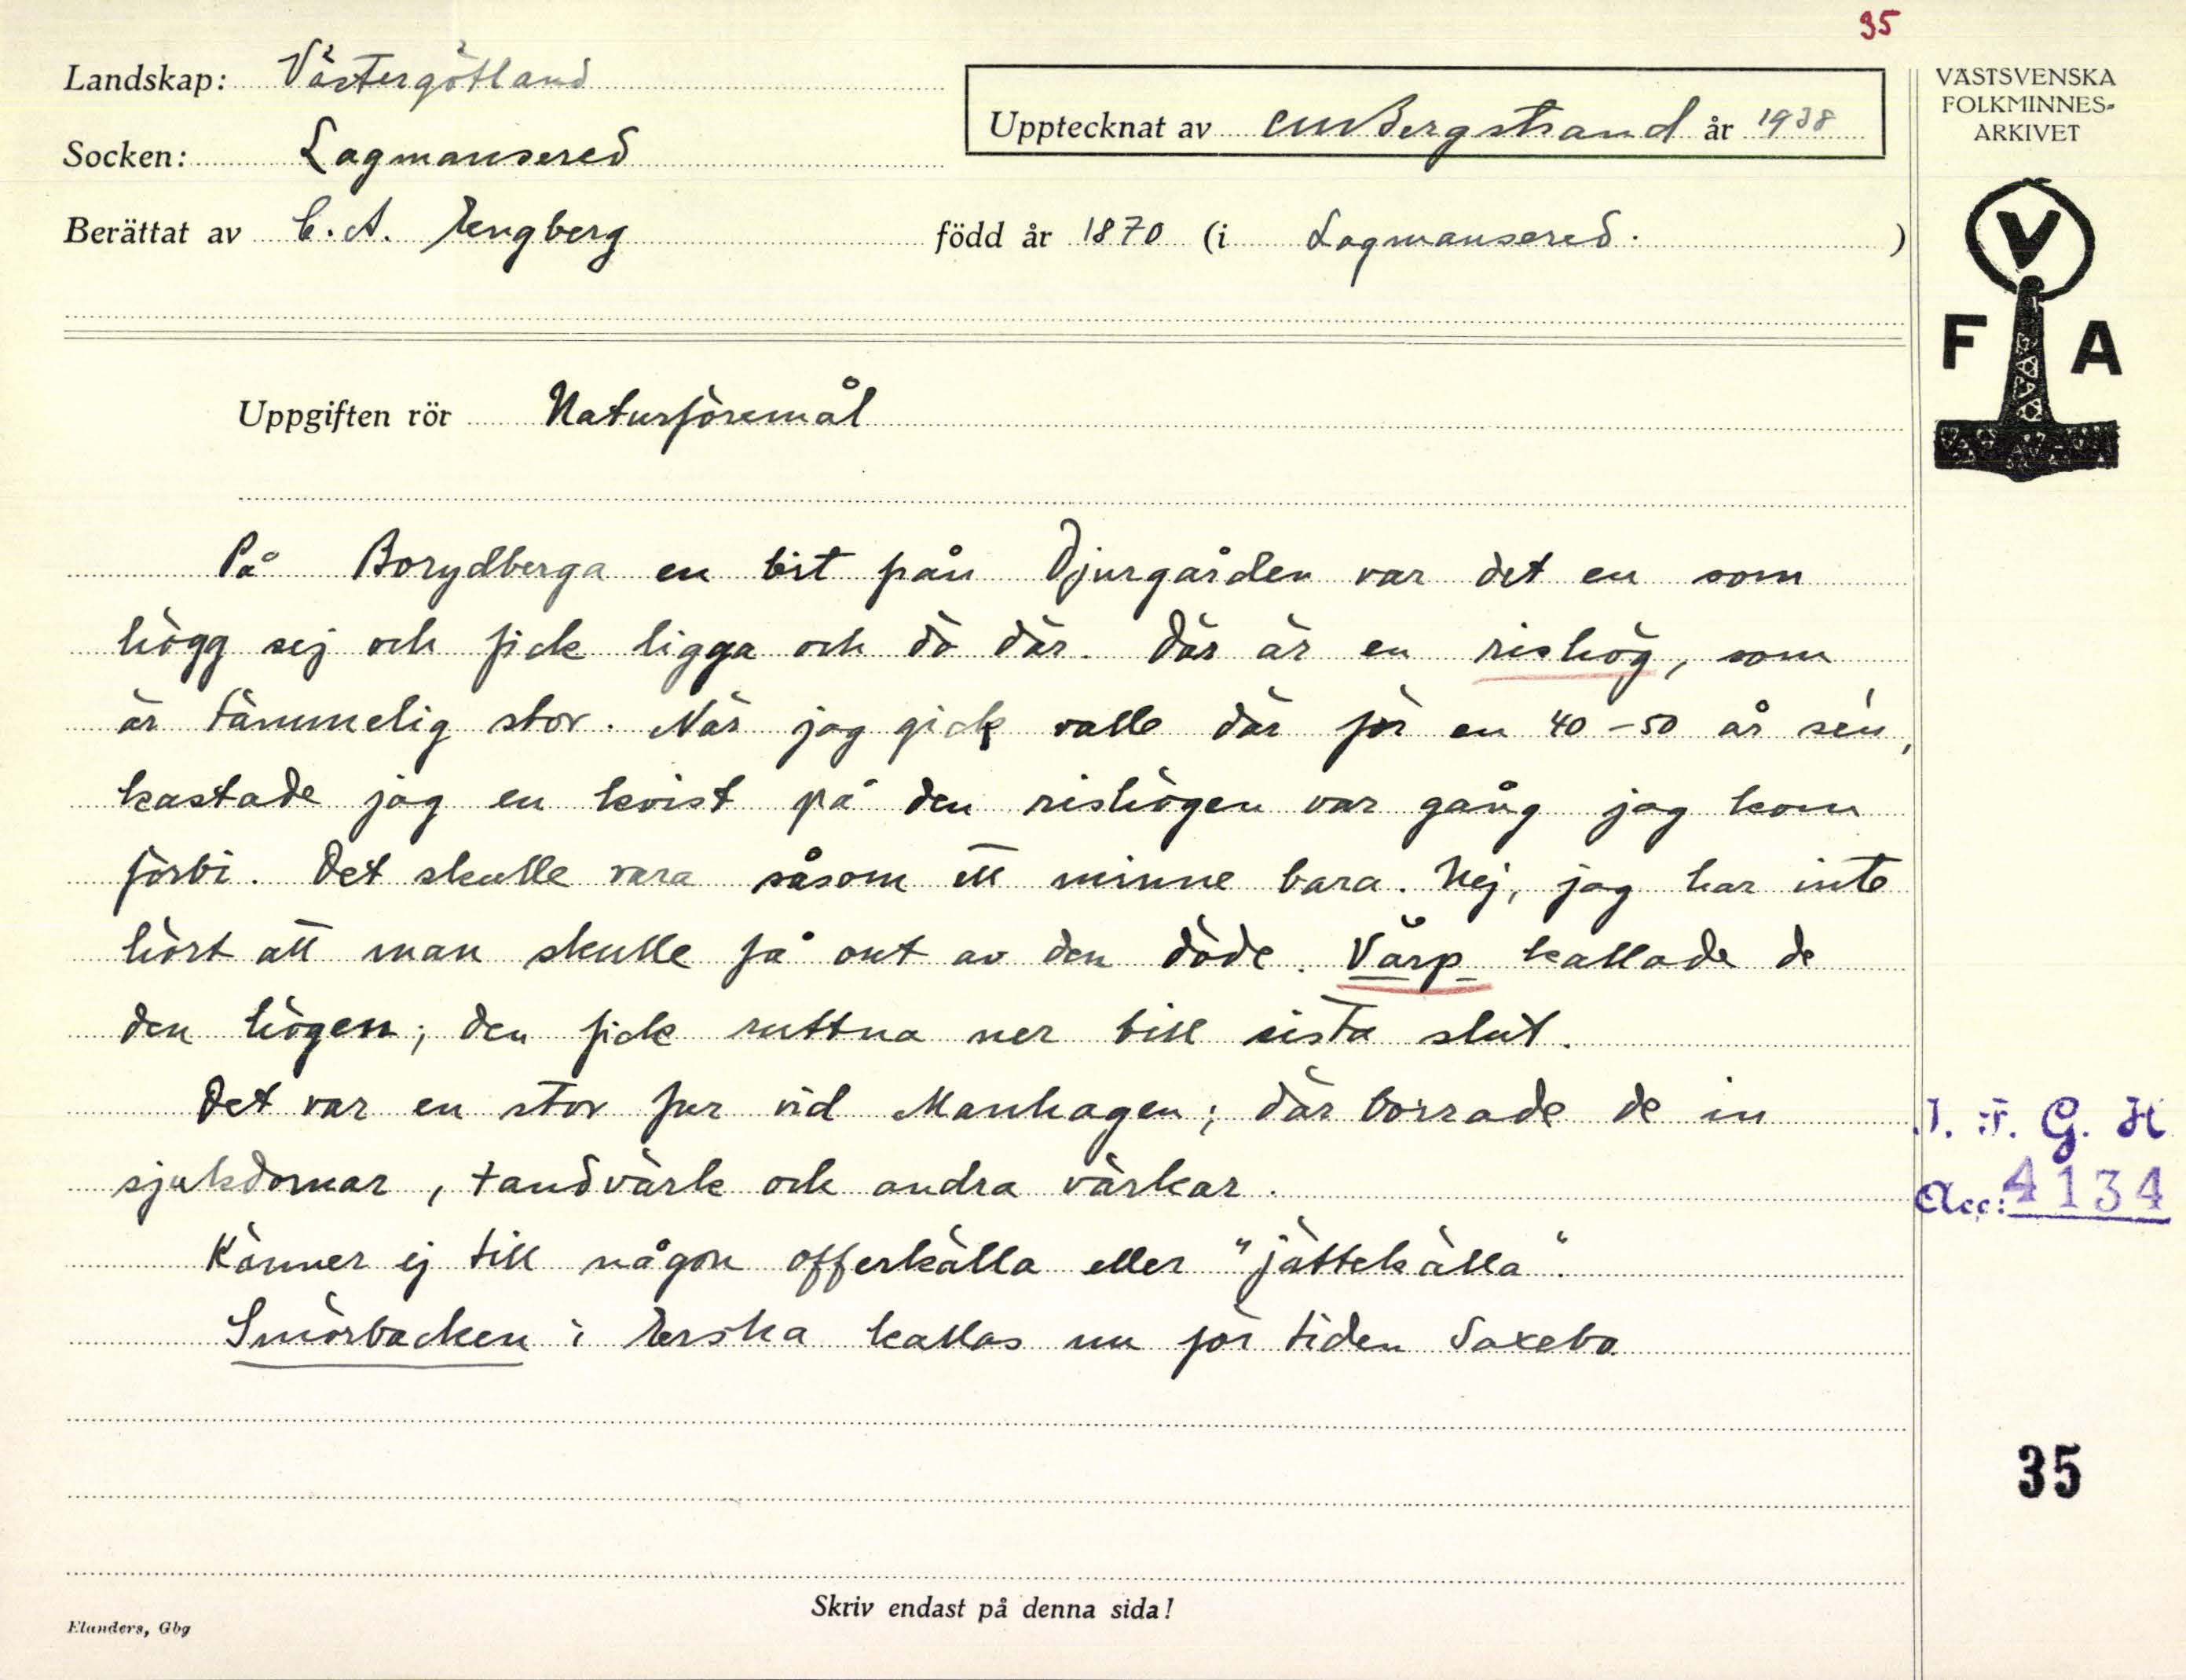 35
Landskap: Västergötland
VÄSTSVENSKA
FOLKMINNES-
ARKIVET
Upptecknat av CMBergstrand år 1938
Socken: Lagmansered
Berättat av C. A. Engberg född år 1870 (i Lagmansered. )
V
F A
Uppgiften rör Naturföremål
På Borydberga en bit från Djurgården var det en som
högg sej och fick ligga och dö där. Där är en rishög, som
är tämmelig stor. När jag gick valle där för en 40-50 år sén,
kastade jag en kvist på den rishögen var gång jag kom
förbi. Det skulle vara såsom ett minne bara. Nej, jag har inte
hört att man skulle få ont av den döde. Värp kallade de
den högen; den fick ruttna ner till sista slut.
Det var en stor fur vid Manhagen; där borrade de in
sjukdomar, tandvärk och andra värkar.
Känner ej till någon offerkälla eller "jättekälla".
Smörbacken i Erska kallas nu för tiden Saxebo
I. F. G. H
Acc: 4134
35
Skriv endast på denna sida!
Elanders, Gbg